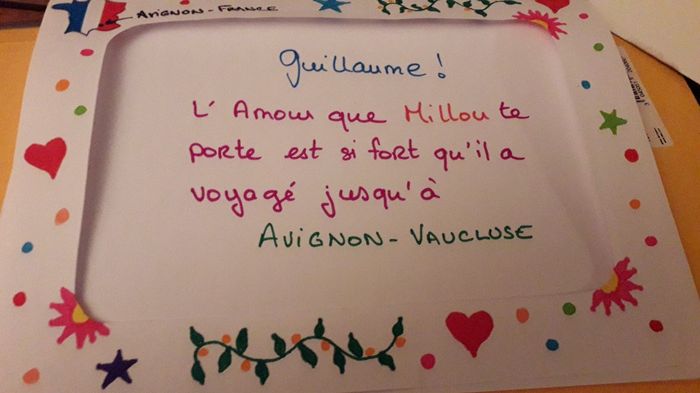 AVIGNON-FRANCE
Guillaume !
L'Amour que Millou te
porte est si fort qu'il a
voyagé jusqu'à
AVIGNON-VAUCLUSE